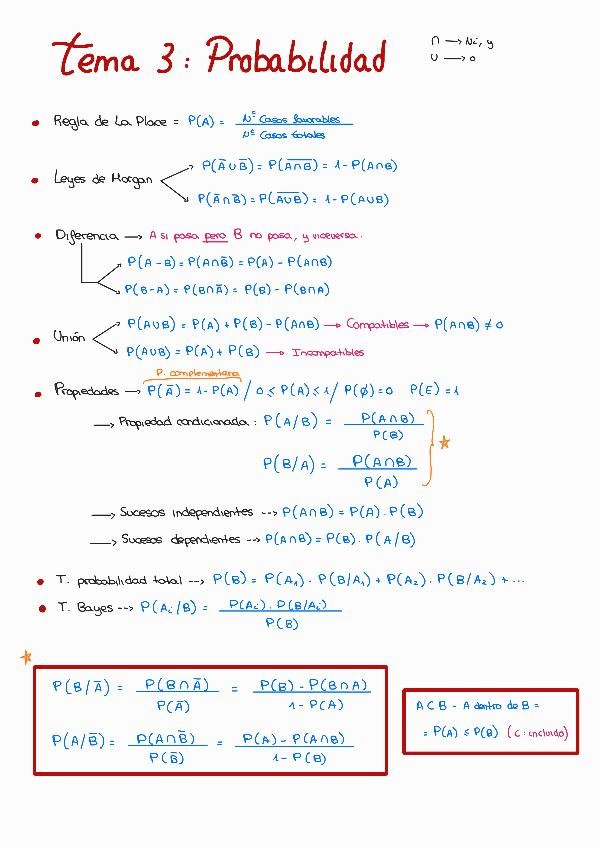 Tema 3: Probabilidad
∩ → Ni, y
∪ → o
• Regla de La Place = P(A) = Nº Casos favorables / Nº Casos totales
• Leyes de Morgan
P(A̅∪B̅) = P(A̅∩̅B̅) = 1 - P(A∩B)
P(A̅∩B̅) = P(A̅∪̅B̅) = 1 - P(A∪B)
• Diferencia → A si pasa pero B no pasa, y viceversa.
P(A-B) = P(A∩B̅) = P(A) - P(A∩B)
P(B-A) = P(B∩A̅) = P(B) - P(B∩A)
• Unión
P(A∪B) = P(A) + P(B) - P(A∩B) → Compatibles → P(A∩B) ≠ 0
P(A∪B) = P(A) + P(B) → Incompatibles
P. complementaria
• Propiedades → P(A̅) = 1 - P(A) / 0 ≤ P(A) ≤ 1 / P(∅) = 0 P(E) = 1
→ Propiedad condicionada: P(A/B) = P(A∩B) / P(B)
P(B/A) = P(A∩B) / P(A)
☆
→ Sucesos independientes --> P(A∩B) = P(A) · P(B)
→ Sucesos dependientes --> P(A∩B) = P(B) · P(A/B)
• T. probabilidad total --> P(B) = P(A₁) · P(B/A₁) + P(A₂) · P(B/A₂) + ...
• T. Bayes --> P(Aᵢ/B) = P(Aᵢ) · P(B/Aᵢ) / P(B)
☆
P(B/A̅) = P(B∩A̅) / P(A̅) = P(B) - P(B∩A) / 1 - P(A)
P(A/B̅) = P(A∩B̅) / P(B̅) = P(A) - P(A∩B) / 1 - P(B)
A ⊂ B - A dentro de B =
= P(A) ≤ P(B) (⊂: incluido)